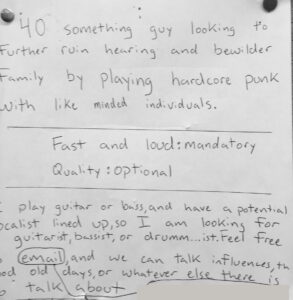 40 something guy looking to
Further ruin hearing and bewilder
Family by playing hardcore punk
with like minded individuals.
Fast and loud: mandatory
Quality: optional
play guitar or bass, and have a potential
ocalist lined up, so I am looking for
guitarist, bassist, or drumm...ist. Feel free
email, and we can talk influences, th
od old days, or whatever else there is
talk about